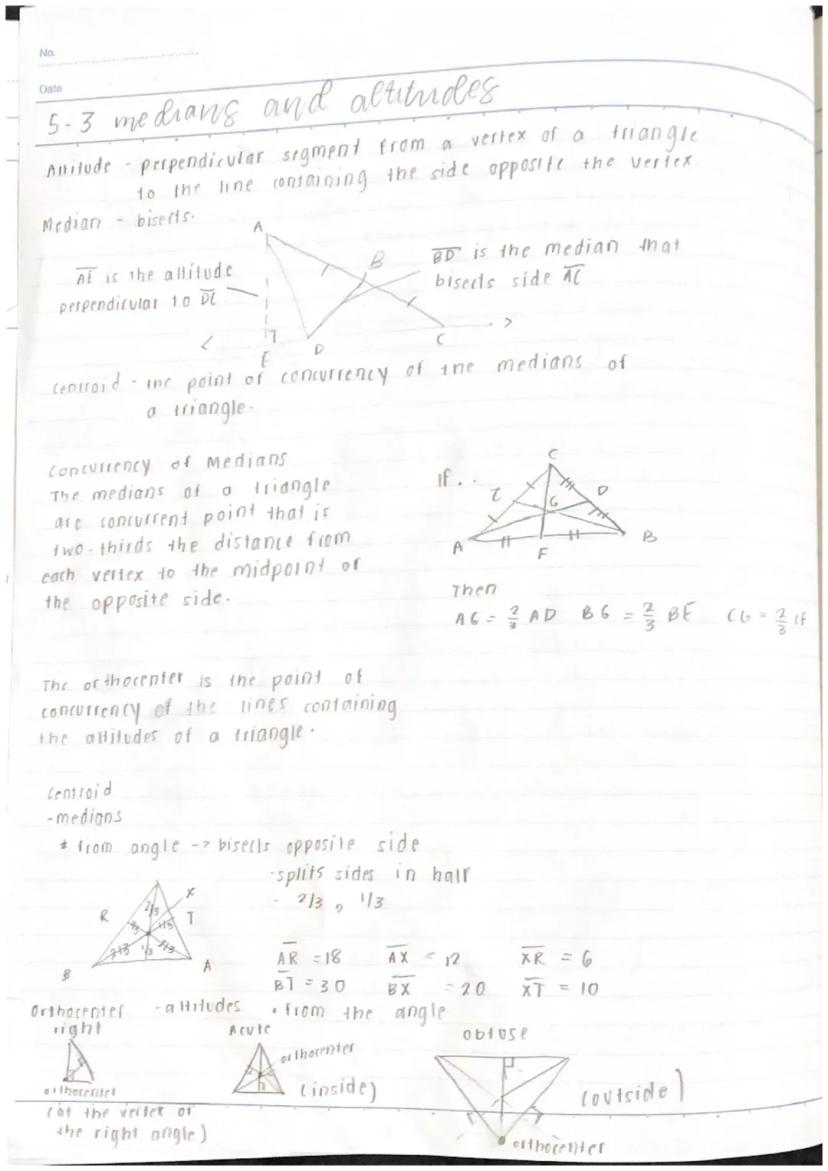 No.
Date
5-3 medians and altitudes
Altitude - perpendicular segment from a vertex of a triangle
to the line containing the side opposite the vertex
Median - bisects.
A
B
AE is the altitude
perpendicular to DC
BD is the median that
bisects side AC
E
D
C
Centroid - the point of concurrency of the medians of
a triangle.
Concurrency of Medians
The medians of a triangle
are concurrent point that is
two-thirds the distance from
each vertex to the midpoint of
the opposite side.
If..
C
E
G
D
A
F
B
Then
AG = 2/3 AD BG = 2/3 BE CG = 2/3 CF
The orthocenter is the point of
concurrency of the lines containing
the altitudes of a triangle.
Centroid
-medians
* from angle -> bisects opposite side
-splits sides in half
- 2/3, 1/3
R
2/3
X
T
1/3
1/3
2/3
1/3
2/3
B
A
AR = 18 AX = 12 XR = 6
BT = 30 BX = 20 XT = 10
Orthocenter - altitudes • from the angle
right
orthocenter
(at the vertex of
the right angle)
Acute
orthocenter
(inside)
obtuse
(outside)
orthocenter